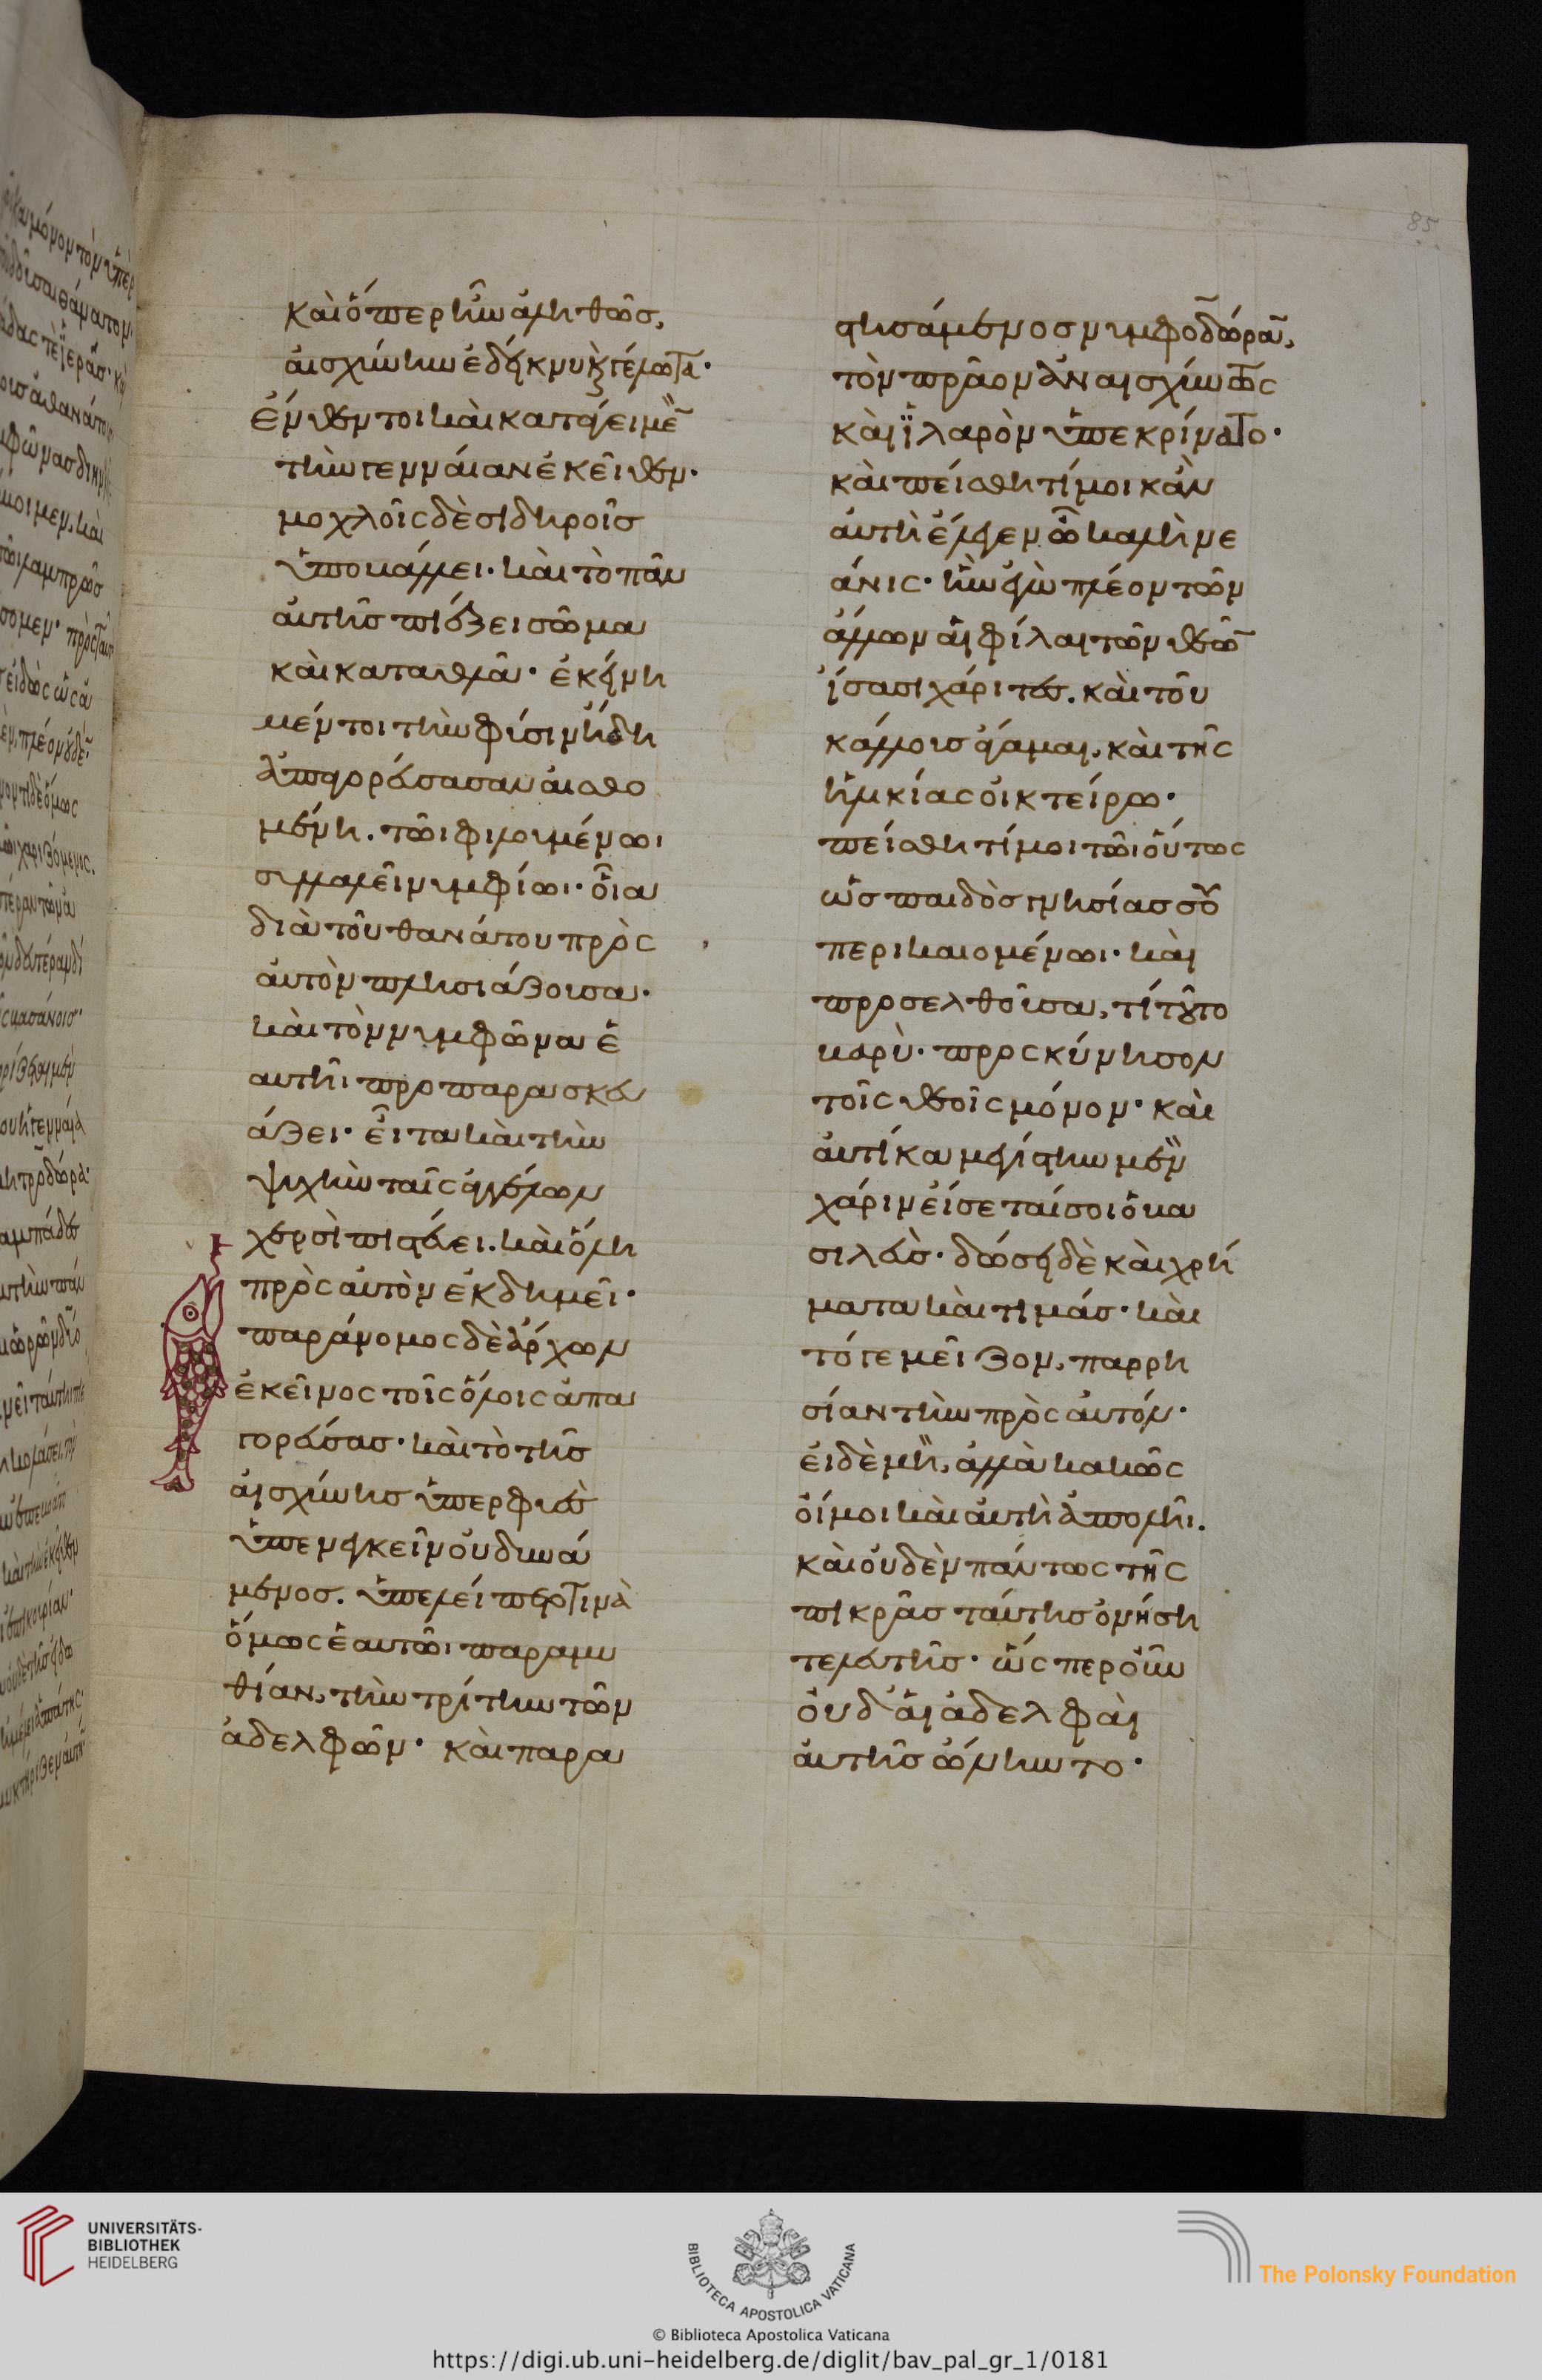 καὶ ὅπερ ἦν ἀληθῶς,
αἰσχύνην ἐδείκνυ καὶ γέλωτα·
ἔνθέν τοι καὶ κατάγει μὲν
τὴν γενναίαν ἐκεῖθεν·
μοχλοῖς δὲ σιδηροῖς
ὑποβάλλει· καὶ τὸ πᾶν
αὐτῆς πιέζει σῶμα
καὶ καταθλᾶ· ἐκείνη
μέντοι τὴν φύσιν ἤδη
ἀπαγορεύσασαν αἰσθο
μένη. τῶι φιλουμένωι
συλλαλεῖ νυμφίωι· οἷα
διὰ τοῦ θανάτου πρὸς
αὐτὸν πλησιάζουσα·
καὶ τὸν νυμφῶνα ἑ
αυτῆι προπαρασκευ
άζει· εἶτα καὶ τὴν
ψυχὴν ταῖς ἀγγέλων
χερσὶ πιστεύει. καὶ ὅλη
πρὸς αὐτὸν ἐκδημεῖ·
παράνομος δὲ ἄρχων
ἐκεῖνος τοῖς ὅλοις ἀπα
γορεύσας· καὶ τὸ τῆς
αἰσχύνης ὑπερφυὲς
ὑπενεγκεῖν οὐ δυνά
μενος. ὑπελείπετό τινα
ὅμως ἑαυτῶι παραμυ
θίαν, τὴν τρίτην τῶν
ἀδελφῶν· καὶ παρα
στησάμενος νυμφοδώραν,
τὸν πρᾶον ἀναισχύντως
καὶ ἱλαρὸν ὑπεκρίνατο·
καὶ πείσθητί μοι κἂν
αὐτὴ ἔλεγεν ὦ καλὴ νε
άνις· ἣν ἐγὼ πλέον τῶν
ἄλλων αἱ φίλαι τῶν θεῶν
ἴσασι χάριτες. καὶ τοῦ
κάλλους ἄγαμαι, καὶ τῆς
ἡλικίας οἰκτείρω·
πείσθητί μοι τῶι οὕτως
ὡς παιδὸς γνησίας σοῦ
περικαιομένωι· καὶ
προσελθοῦσα, τί τοῦτο
βαρὺ· προσκύνησον
τοῖς θεοῖς μόνον· καὶ
αὐτίκα μεγίστην μὲν
χάριν εἴσεταί σοι ὁ βα
σιλεὺς· δώσει δὲ καὶ χρή
ματα καὶ τιμάς· καὶ
τό γε μεῖζον, παρρη
σίαν τὴν πρὸς αὐτόν·
εἰ δὲ μὴ, ἀλλὰ κακῶς
οἴμοι καὶ αὐτὴ ἀπολῆι.
καὶ οὐδὲν πάντως τῆς
πικρᾶς ταύτης ὀνήση
τελευτῆς· ὥς περ οὖν
οὐδ' αἱ ἀδελφαὶ
αὐτῆς ὤνηντο·
85
UNIVERSITÄTS-
BIBLIOTHEK
HEIDELBERG
BIBLIOTECA APOSTOLICA VATICANA
The Polonsky Foundation
© Biblioteca Apostolica Vaticana
https://digi.ub.uni-heidelberg.de/diglit/bav_pal_gr_1/0181